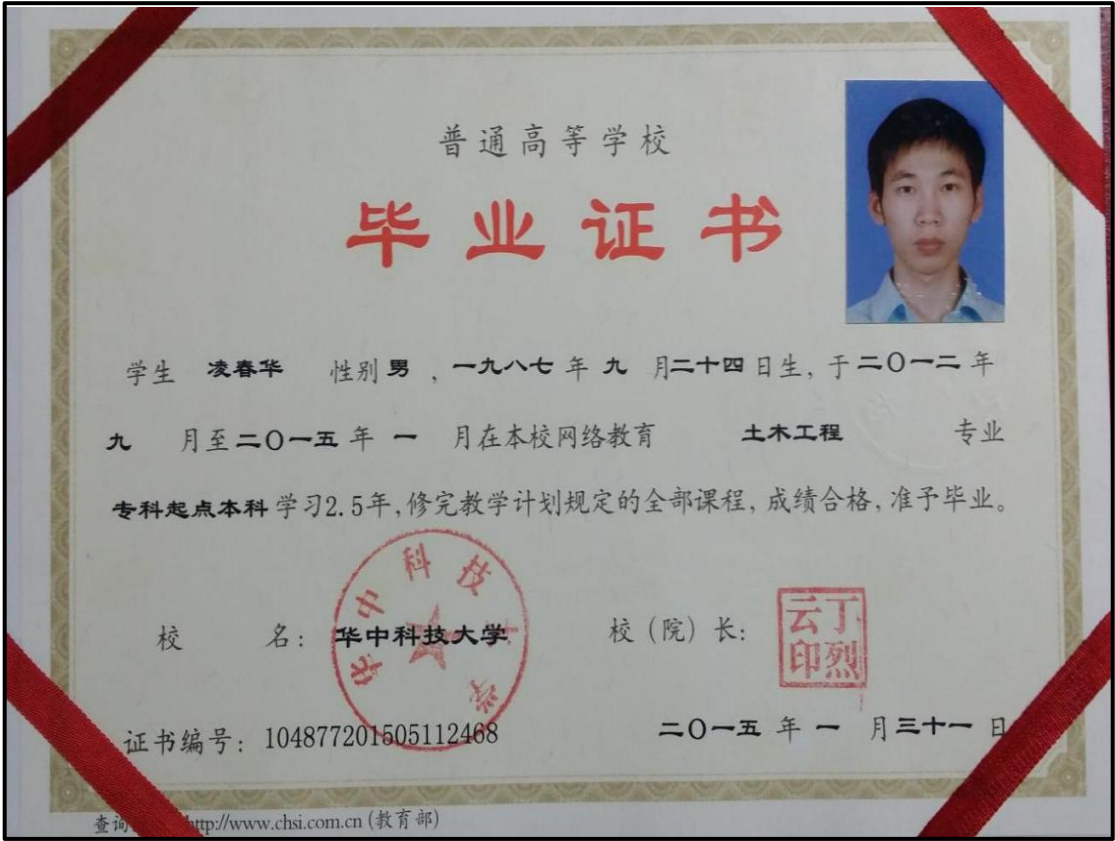 普通高等学校
毕业证书
学生 凌春华 性别 男 ，一九八七 年 九 月二十四日生，于二〇一二年
九 月至二〇一五 年 一 月在本校网络教育 土木工程 专业
专科起点本科 学习2.5年，修完教学计划规定的全部课程，成绩合格，准予毕业。
华中科技大学
校 名：华中科技大学 校（院）长：
丁烈云印
证书编号：104877201505112468 二〇一五 年 一 月三十一 日
查询 http://www.chsi.com.cn (教育部)